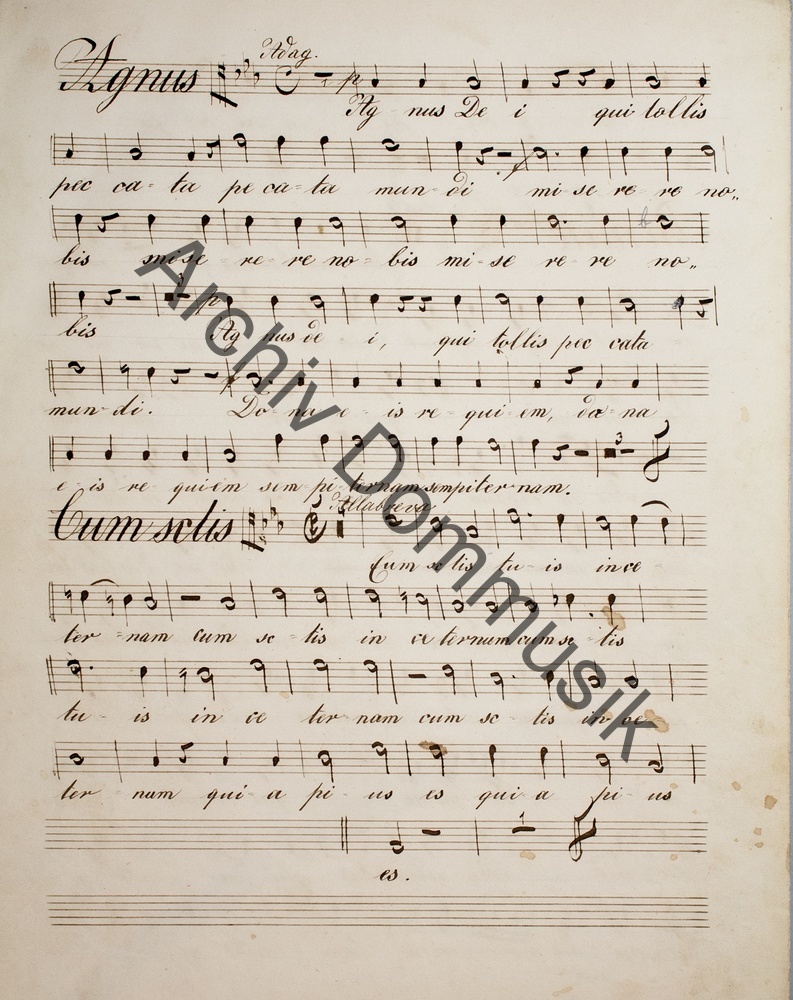 Agnus Adag. p
Ag nus De i qui tollis
pec ca - ta pe ca - ta mun - di mi - se re - re no„
bis mise - re - re no - bis mi - se re - re no„
bis
p
Ag nus de - i, qui tollis pec cata
mun - di. Do - na e - is re - qui - em, do - na
e - is re - quiem sem pi - ternam sempiter nam.
Cum sctis Allabreva
Cum sc tis tu - is in ce -
ter - nam cum sc - tis in ce ternum cum sc - tis
tu - is in ce ter nam cum sc - tis in ce
ter - nam qui - a pi - us es qui - a pi - us
es.
Archiv Dommusik